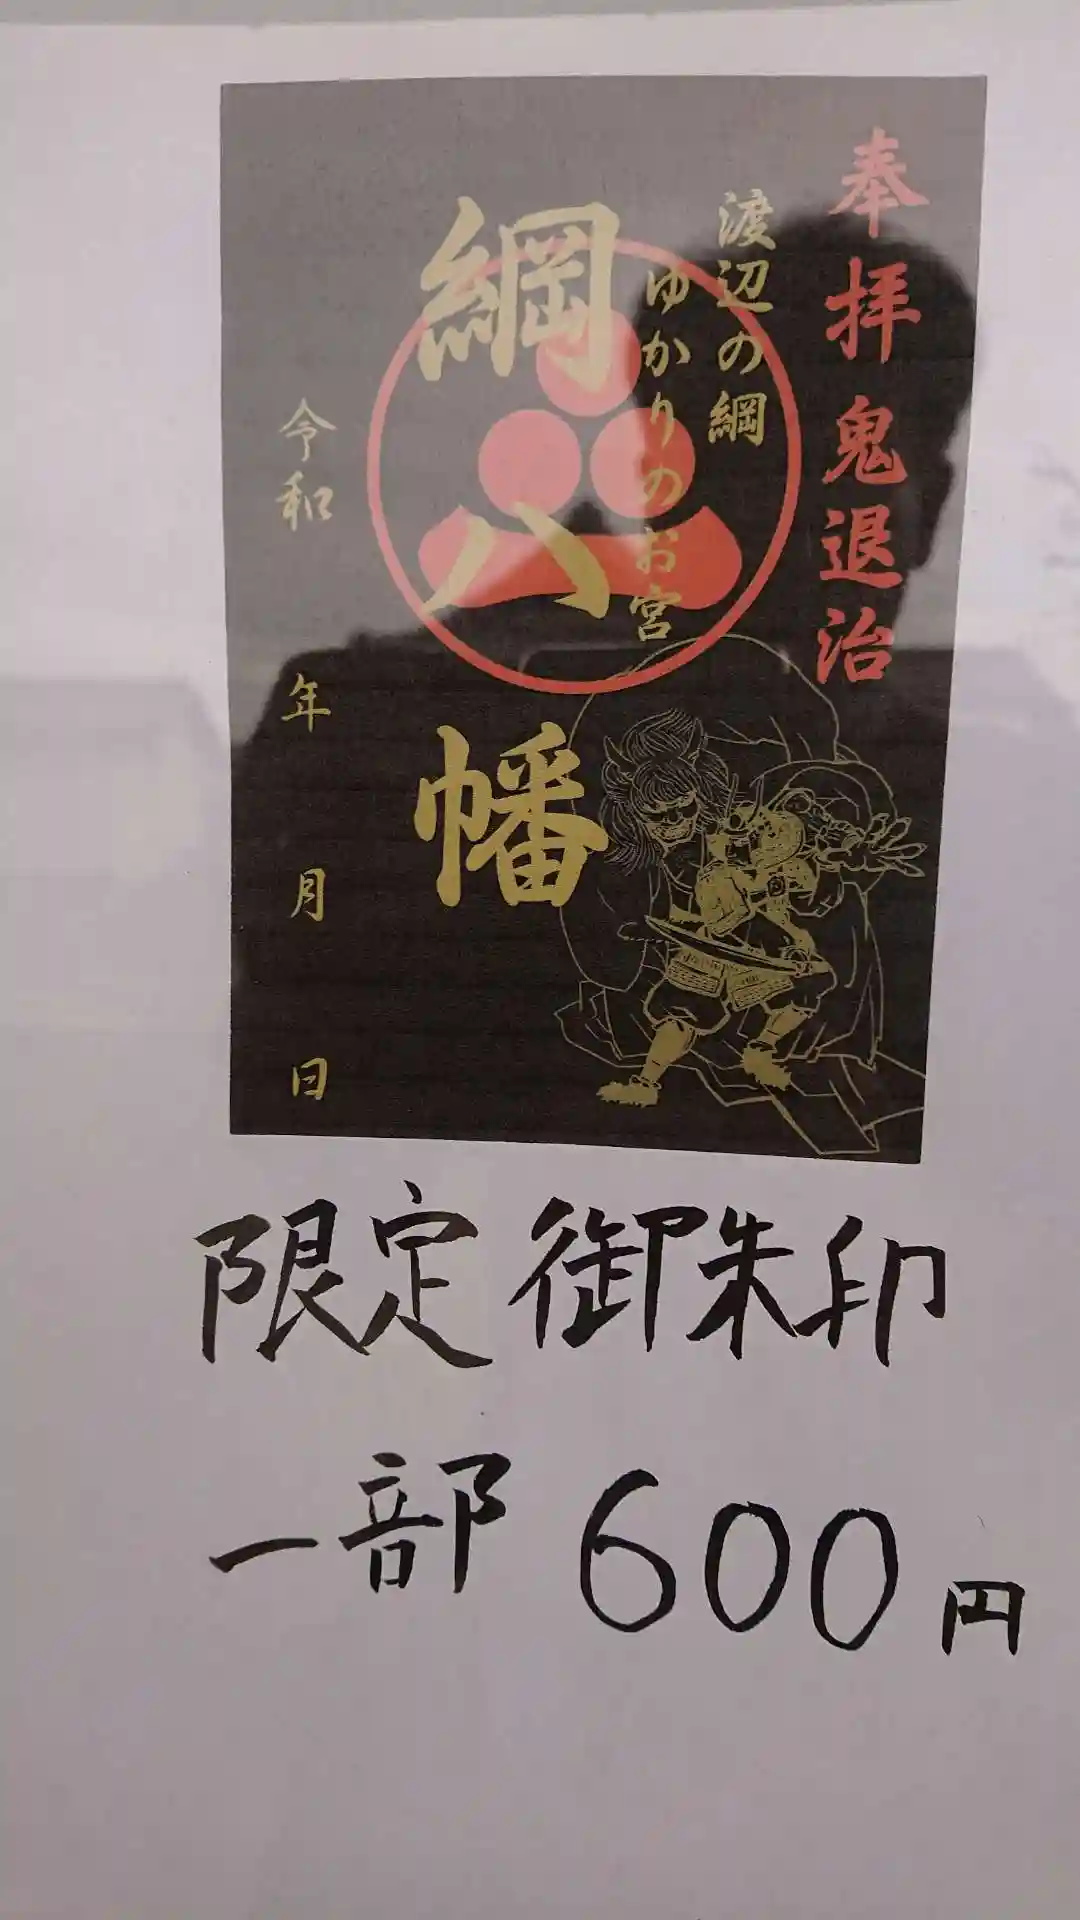 奉拝 鬼退治
渡辺の綱
ゆかりのお宮
綱八幡
令和 年 月 日
限定御朱印
一部 600円